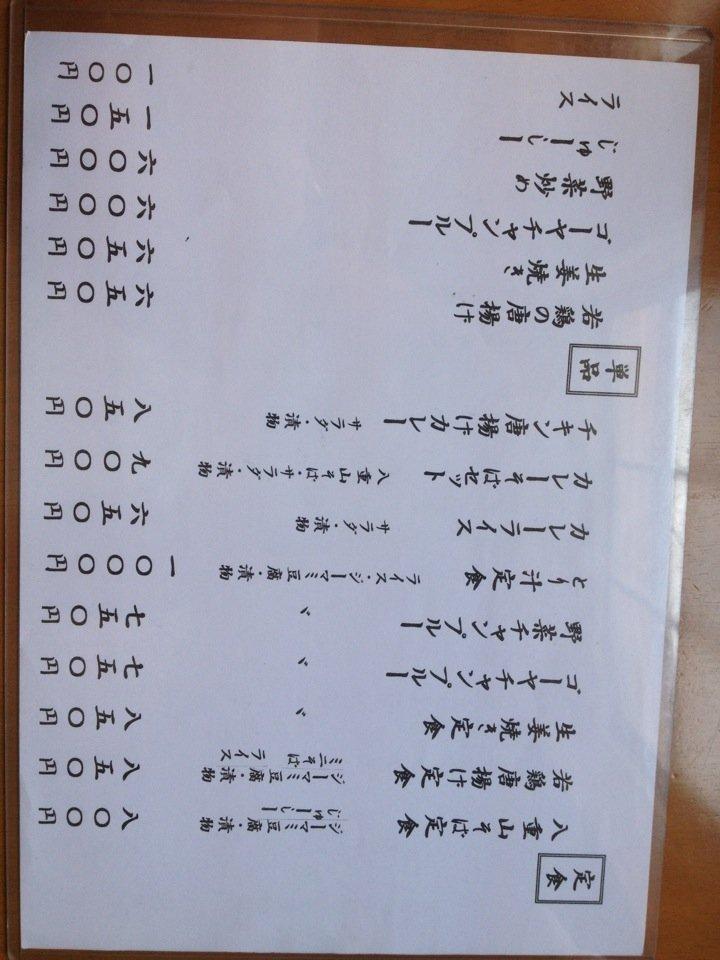 定食
八重山そば定食 ジーマミ豆腐・漬物 じゅーしー 八〇〇円
若鶏唐揚げ定食 ジーマミ豆腐・漬物 ミニそば ライス 八五〇円
生姜焼き定食 〃 八五〇円
ゴーヤチャンプルー 〃 七五〇円
野菜チャンプルー 〃 七五〇円
とり汁定食 ライス・ジーマミ豆腐・漬物 一〇〇〇円
カレーライス サラダ・漬物 六五〇円
カレーそばセット 八重山そば・サラダ・漬物 九〇〇円
チキン唐揚げカレー サラダ・漬物 八五〇円
単品
若鶏の唐揚げ 六五〇円
生姜焼き 六五〇円
ゴーヤチャンプルー 六〇〇円
野菜炒め 六〇〇円
じゅーしー 一五〇円
ライス 一〇〇円